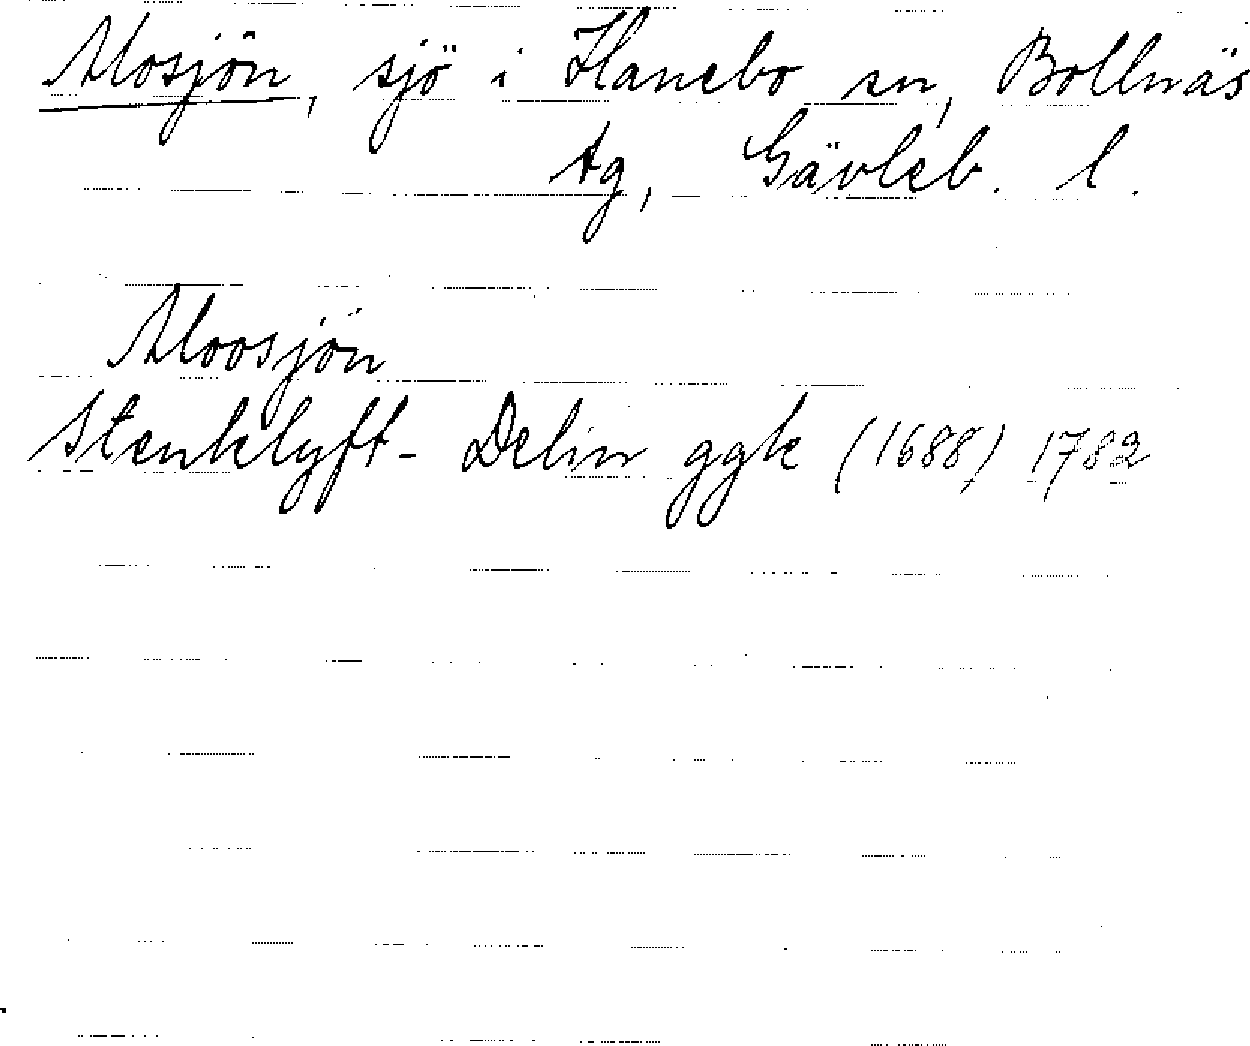 Mosjön, sjö i Hanebo sn, Bollnäs
tg, Gävleb. l.
Moosjön
Stenklyft- Delin ggk (1688) 1782